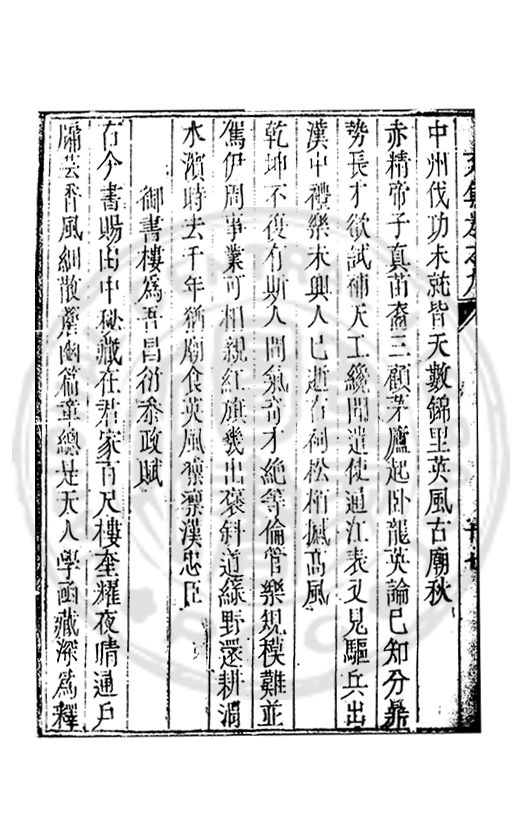 中州伐功未就皆天數錦里英風古廟秋
赤精帝子真苗裔三顧茅廬起卧龍英論已知分鼎
勢長才欲試補天工纔聞遣使通江表又見驅兵出
漢中禮樂未興人已逝古祠松栢撼高風
乾坤不復有斯人間氣奇才絶等倫管樂規模難並
駕伊周事業可相親紅旗幾出褒斜道綠野還耕渭
水濱時去千年猶廟食英風凛凛漢忠臣
御書樓爲吾昌衍叅政賦
古今書賜由中秘藏在君家百尺樓奎耀夜晴通戶
牖芸香風細散簷幽篇章總是天人學函藏深爲釋